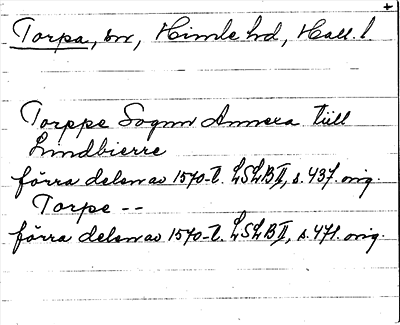 +
Torpa, sn, Himle hd, Hall. l.
Torppe Sognn Annexa till
Lindbierre
förra delen av 1570-t. LSLB II, s. 437. orig.
Torpe --
förra delen av 1570-t. LSLB II, s. 471. orig.